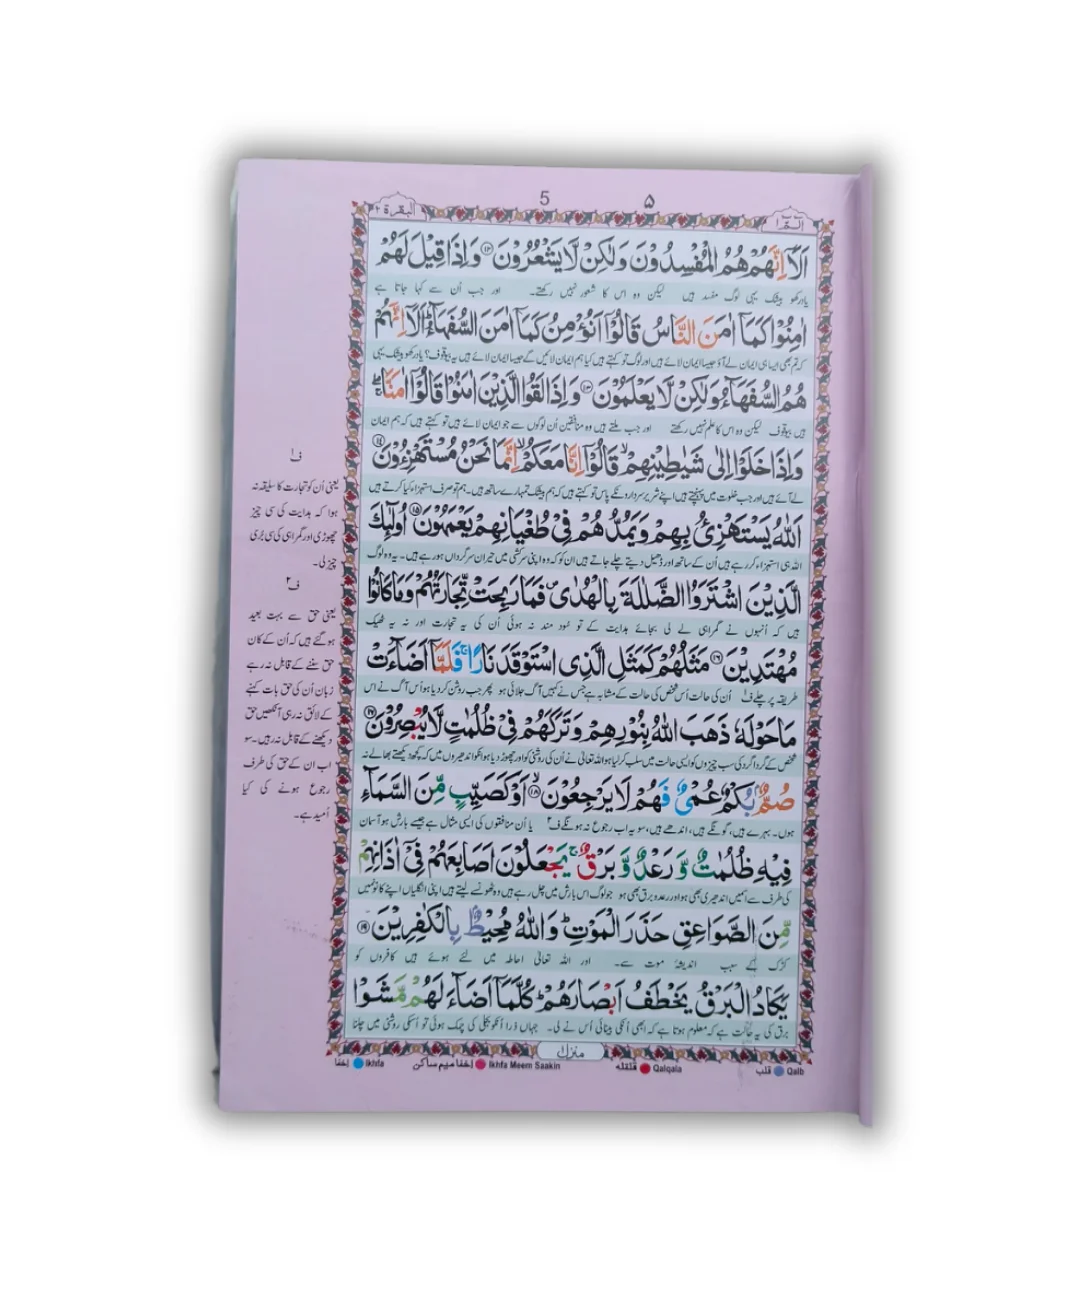 5 ۵
الٓمّٓ ١
البقرة ٢
اَلَاۤ اِنَّهُمْ هُمُ الْمُفْسِدُوْنَ وَلٰكِنْ لَّا يَشْعُرُوْنَ ۝۱۲ وَاِذَا قِيْلَ لَهُمْ
یاد رکھو بیشک یہی لوگ مفسد ہیں لیکن وہ اس کا شعور نہیں رکھتے۔ اور جب اُن سے کہا جاتا ہے
اٰمِنُوْا كَمَاۤ اٰمَنَ النَّاسُ قَالُوْۤا اَنُؤْمِنُ كَمَاۤ اٰمَنَ السُّفَهَآءُ ؕ اَلَاۤ اِنَّهُمْ
کہ تم بھی ایسا ہی ایمان لے آؤ جیسا ایمان لائے ہیں اور لوگ تو کہتے ہیں کیا ہم ایمان لائیں گے جیسا ایمان لائے ہیں یہ بیوقوف؟ یاد رکھو بیشک یہی
هُمُ السُّفَهَآءُ وَلٰكِنْ لَّا يَعْلَمُوْنَ ۝۱۳ وَاِذَا لَقُوا الَّذِيْنَ اٰمَنُوْا قَالُوْۤا اٰمَنَّا ۖۚ
ہیں بیوقوف لیکن وہ اس کا علم نہیں رکھتے اور جب ملتے ہیں وہ منافقین اُن لوگوں سے جو ایمان لائے ہیں تو کہتے ہیں کہ ہم ایمان
وَاِذَا خَلَوْا اِلٰى شَيٰطِيْنِهِمْ ۙ قَالُوْۤا اِنَّا مَعَكُمْ ۙ اِنَّمَا نَحْنُ مُسْتَهْزِءُوْنَ ۝۱۴
لے آئے ہیں اور جب خلوت میں پہنچتے ہیں اپنے شریر سرداروں کے پاس تو کہتے ہیں کہ ہم بیشک تمہارے ساتھ ہیں۔ ہم تو صرف استہزاء کیا کرتے ہیں
اَللّٰهُ يَسْتَهْزِئُ بِهِمْ وَيَمُدُّهُمْ فِيْ طُغْيَانِهِمْ يَعْمَهُوْنَ ۝۱۵ اُولٰٓئِكَ
اللہ ہی استہزاء کر رہے ہیں اُن کے ساتھ اور ڈھیل دیتے چلے جاتے ہیں ان کو کہ وہ اپنی سرکشی میں حیران سرگرداں ہو رہے ہیں۔ یہ وہ لوگ
الَّذِيْنَ اشْتَرَوُا الضَّلٰلَةَ بِالْهُدٰى ۪ فَمَا رَبِحَتْ تِّجَارَتُهُمْ وَمَا كَانُوْا
ہیں کہ اُنہوں نے گمراہی لے لی بجائے ہدایت کے تو سُود مند نہ ہوئی اُن کی یہ تجارت اور نہ یہ ٹھیک
مُهْتَدِيْنَ ۝۱۶ مَثَلُهُمْ كَمَثَلِ الَّذِى اسْتَوْقَدَ نَارًا ۚ فَلَمَّاۤ اَضَآءَتْ
طریقہ پر چلے ف۱ اُن کی حالت اُس شخص کی حالت کے مشابہ ہے جس نے کہیں آگ جلائی ہو پھر جب روشن کر دیا ہو اُس آگ نے اس
مَا حَوْلَهٗ ذَهَبَ اللّٰهُ بِنُوْرِهِمْ وَتَرَكَهُمْ فِيْ ظُلُمٰتٍ لَّا يُبْصِرُوْنَ ۝۱۷
شخص کے گردا گرد کی سب چیزوں کو ایسی حالت میں سلب کر لیا ہو اللہ تعالیٰ نے اُن کی روشنی کو اور چھوڑ دیا ہو انکو اندھیروں میں کہ کچھ دیکھتے بھالتے نہ
صُمٌّۢ بُكْمٌ عُمْيٌ فَهُمْ لَا يَرْجِعُوْنَ ۝۱۸ ۙ اَوْ كَصَيِّبٍ مِّنَ السَّمَآءِ
ہوں۔ بہرے ہیں، گونگے ہیں، اندھے ہیں، سو یہ اب رجوع نہ ہونگے ف۲ یا اُن منافقوں کی ایسی مثال ہے جیسے بارش ہو آسمان
فِيْهِ ظُلُمٰتٌ وَّرَعْدٌ وَّبَرْقٌ ۚ يَجْعَلُوْنَ اَصَابِعَهُمْ فِيْۤ اٰذَانِهِمْ
کی طرف سے اُسمیں اندھیری بھی ہو اور رعد و برق بھی ہو جو لوگ اس بارش میں چل رہے ہیں وہ ٹھونسے لیتے ہیں اپنی انگلیاں اپنے کانوں میں
مِّنَ الصَّوَاعِقِ حَذَرَ الْمَوْتِ ؕ وَاللّٰهُ مُحِيْطٌۢ بِالْكٰفِرِيْنَ ۝۱۹
کڑک کے سبب اندیشۂ موت سے۔ اور اللہ تعالیٰ احاطہ میں لئے ہوئے ہیں کافروں کو
يَكَادُ الْبَرْقُ يَخْطَفُ اَبْصَارَهُمْ ؕ كُلَّمَاۤ اَضَآءَ لَهُمْ مَّشَوْا
برق کی یہ حالت ہے کہ معلوم ہوتا ہے کہ ابھی انکی بینائی اُس نے لی۔ جہاں ذرا اُنکو بجلی کی چمک ہوئی تو اُسکی روشنی میں چلنا
ف۱
یعنی اُن کو تجارت کا سلیقہ نہ
ہوا کہ ہدایت کی سی چیز
چھوڑی اور گمراہی کی سی بُری
چیز لی۔
ف۲
یعنی حق سے بہت بعید
ہوگئے ہیں کہ اُن کے کان
حق سننے کے قابل نہ رہے
زبان اُن کی حق بات کہنے
کے لائق نہ رہی آنکھیں حق
دیکھنے کے قابل نہ رہیں۔ سو
اب ان کے حق کی طرف
رجوع ہونے کی کیا
اُمید ہے۔
منزل ۱
قلب Qalb
قلقلہ Qalqala
اخفا میم ساکن Ikhfa Meem Saakin
اخفا Ikhfa